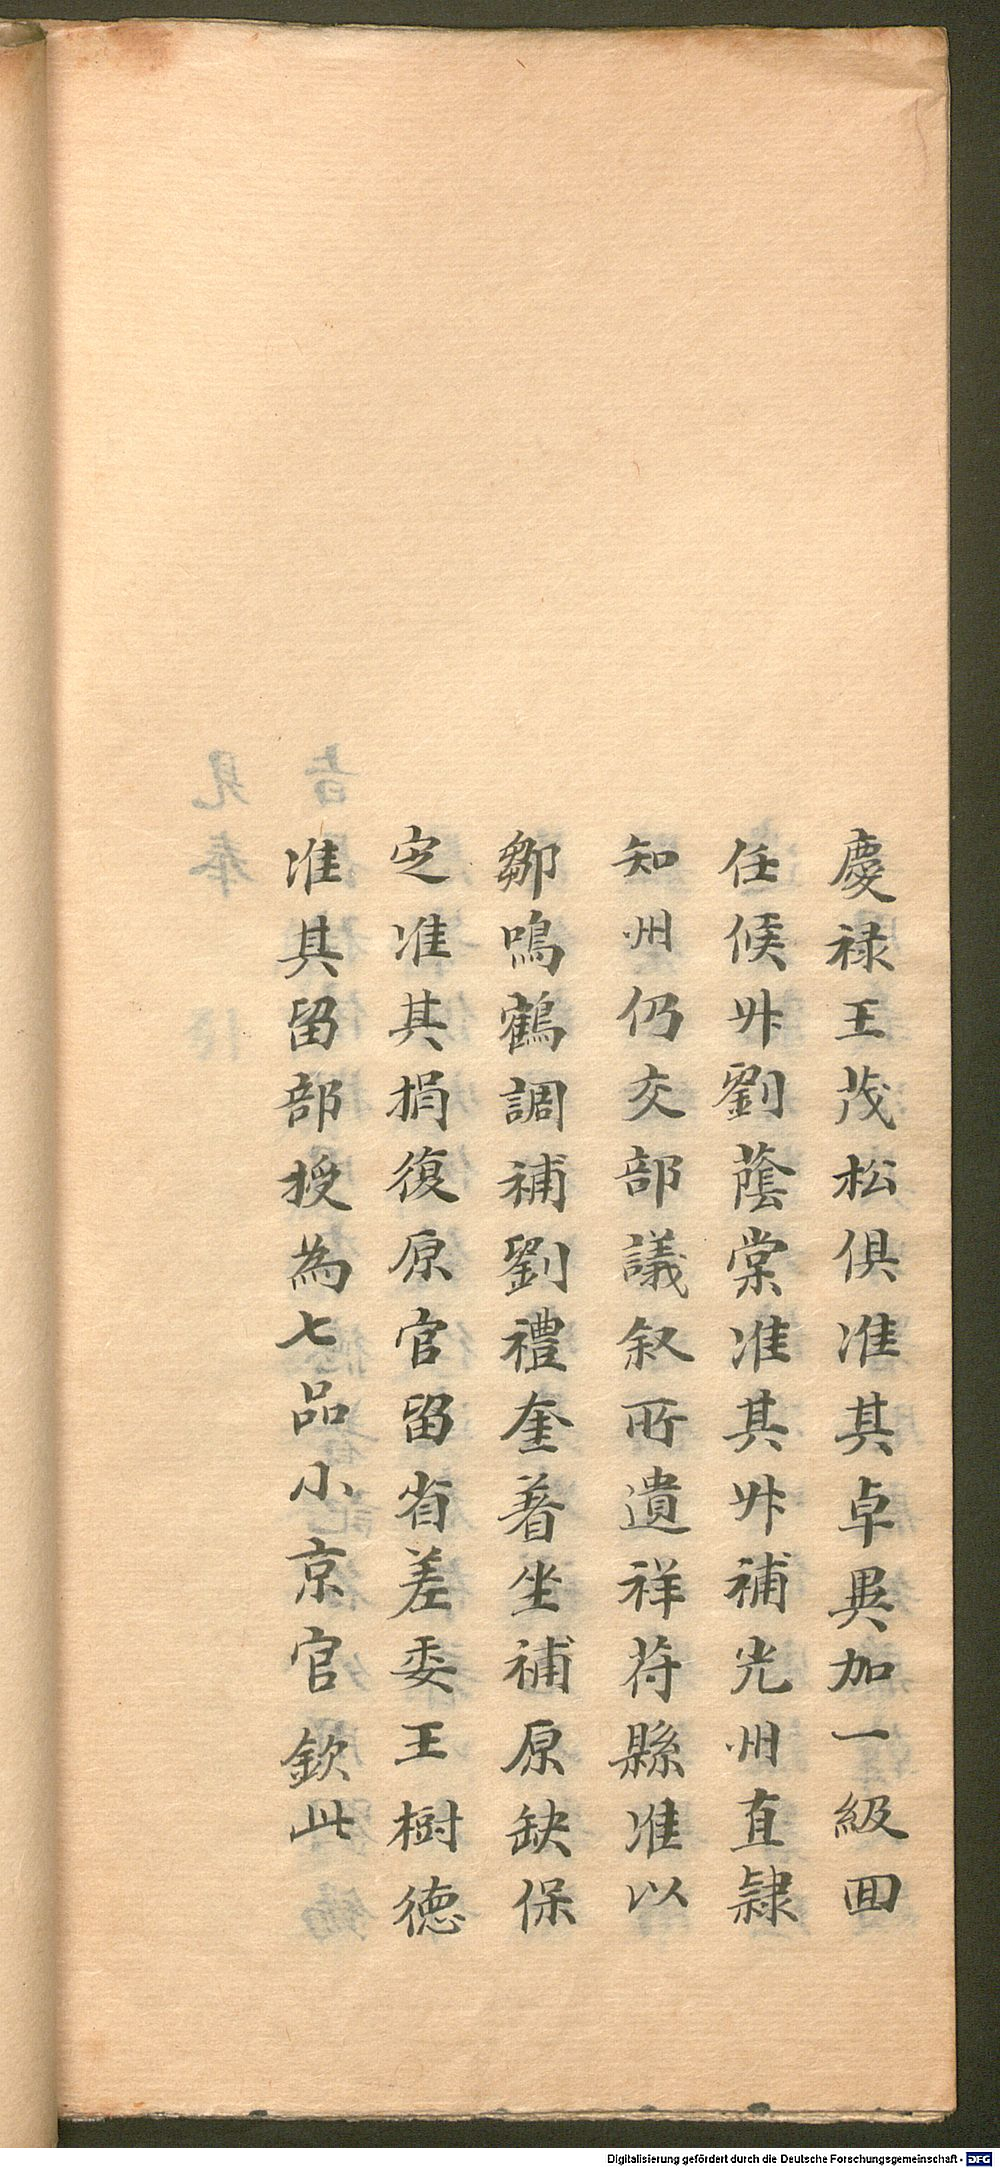 慶祿王茂松俱准其卓異加一級回
任候升劉蔭棠准其升補光州直隸
知州仍交部議叙所遺祥苻縣准以
鄒鳴鶴調補劉禮奎着坐補原缺保
定准其捐復原官留省差委王樹德
准其留部授為七品小京官欽此
Digitalisierung gefördert durch die Deutsche Forschungsgemeinschaft - DFG